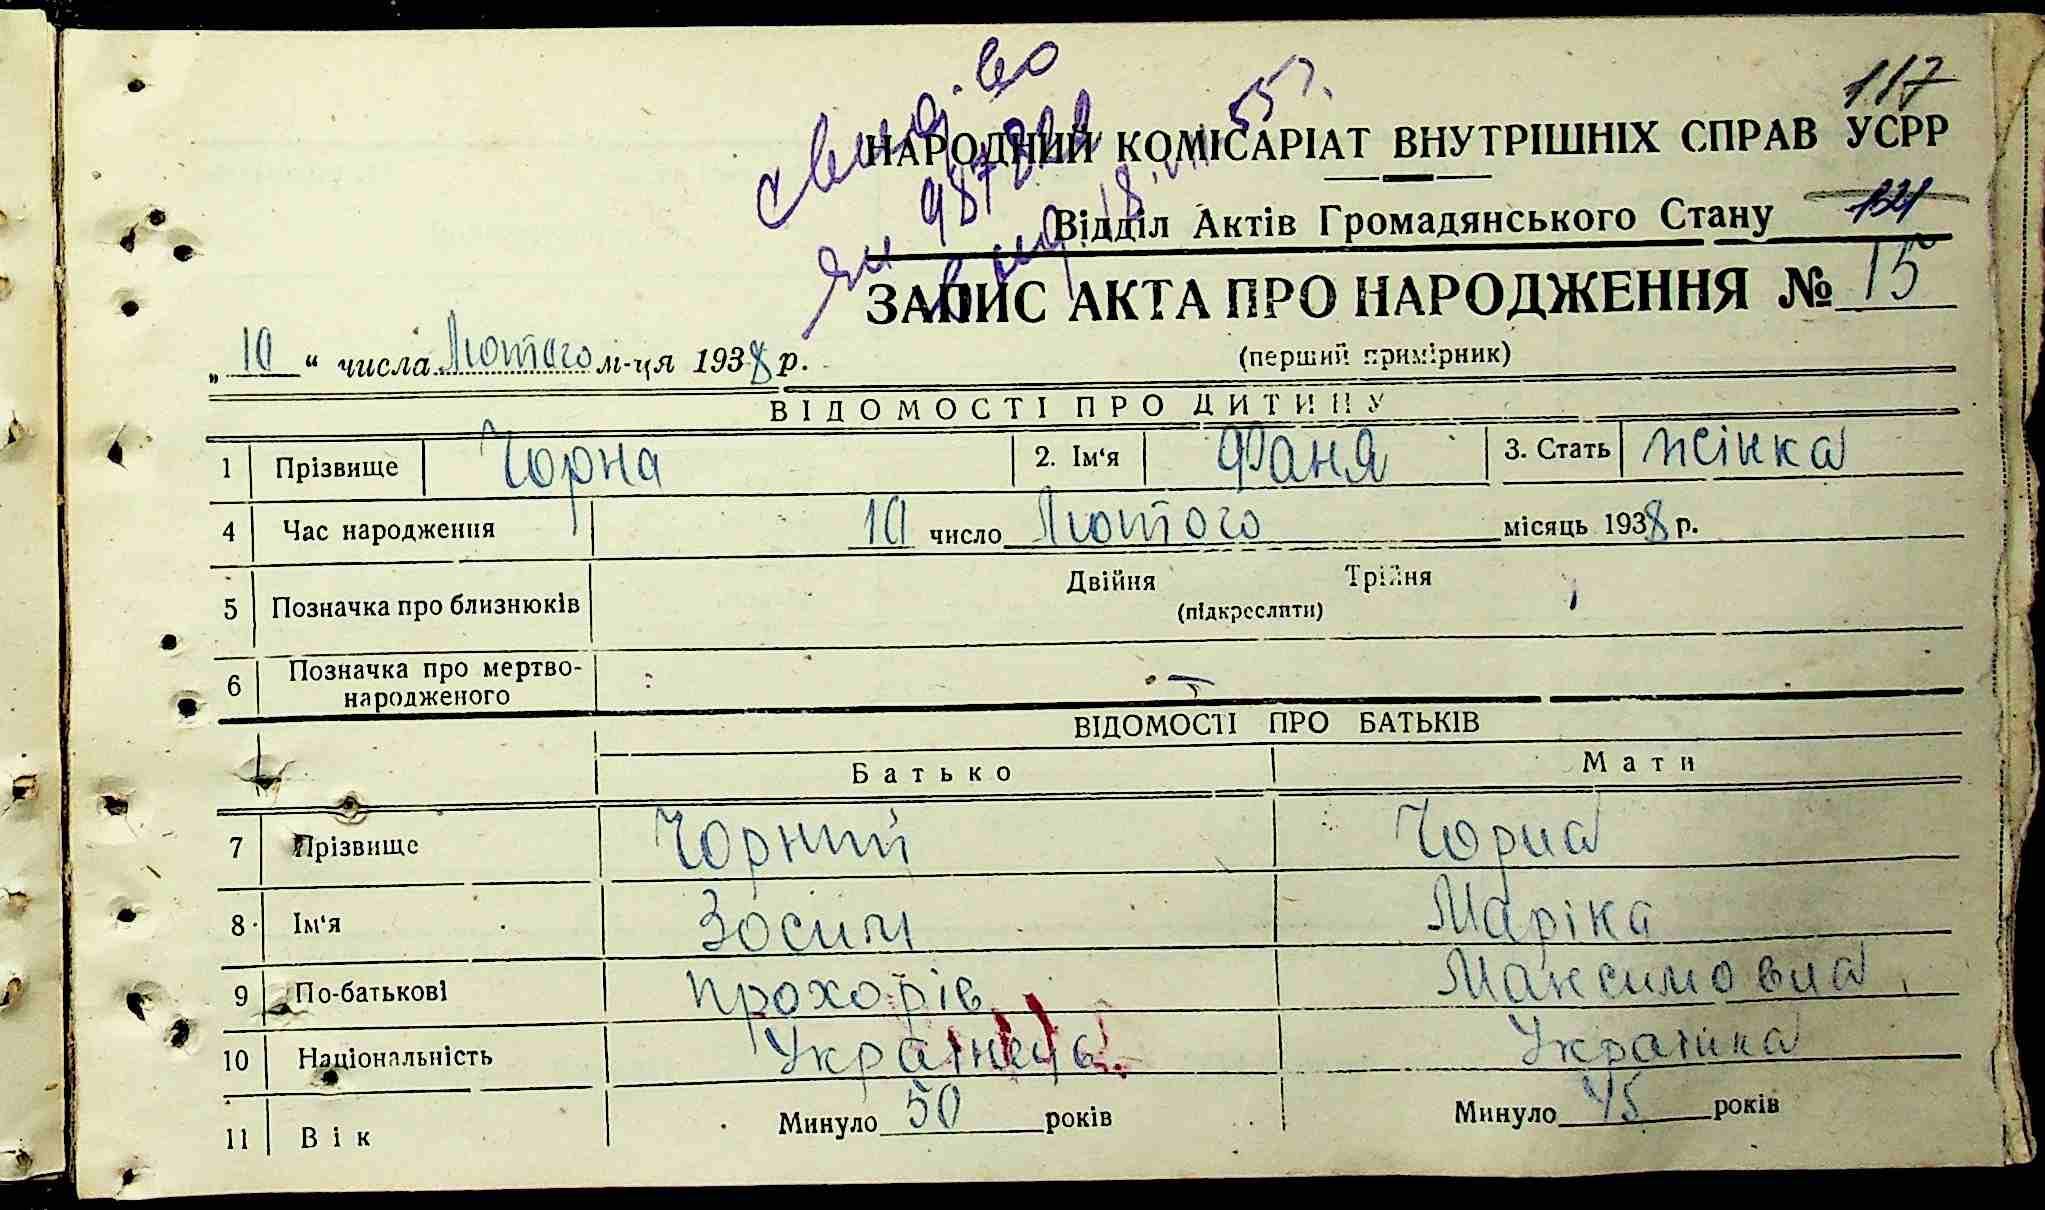 117
свид-во
НАРОДНИЙ КОМІСАРІАТ ВНУТРІШНІХ СПРАВ УСРР
18.VIII 55 г.
Відділ Актів Громадянського Стану 131
ЗАПИС АКТА ПРО НАРОДЖЕННЯ № 15
(перший примірник)
„ 10 “ числа Лютого м-ця 1938 р.
ВІДОМОСТІ ПРО ДИТИНУ
1 Прізвище Чорна 2. Ім‘я Фаня 3. Стать жінка
4 Час народження 10 число Лютого місяць 1938 р.
5 Позначка про близнюків Двійня Трійня
(підкреслити)
6 Позначка про мертво-
народженого
ВІДОМОСТІ ПРО БАТЬКІВ
Батько Мати
7 Прізвище Чорний Чорна
8 Ім‘я Зосим Маріка
9 По-батькові Прохорів Максимовна
10 Національність Українець Українка
11 Вік Минуло 50 років Минуло 45 років